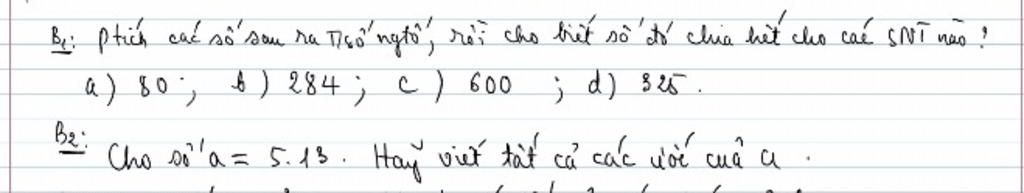 B1: Ptích các số sau ra TSố ngtố, rồi cho biết số đó chia hết cho các SNT nào?
a) 80; b) 284; c) 600; d) 325.
B2: Cho số a = 5.13. Hãy viết tất cả các ước của a.